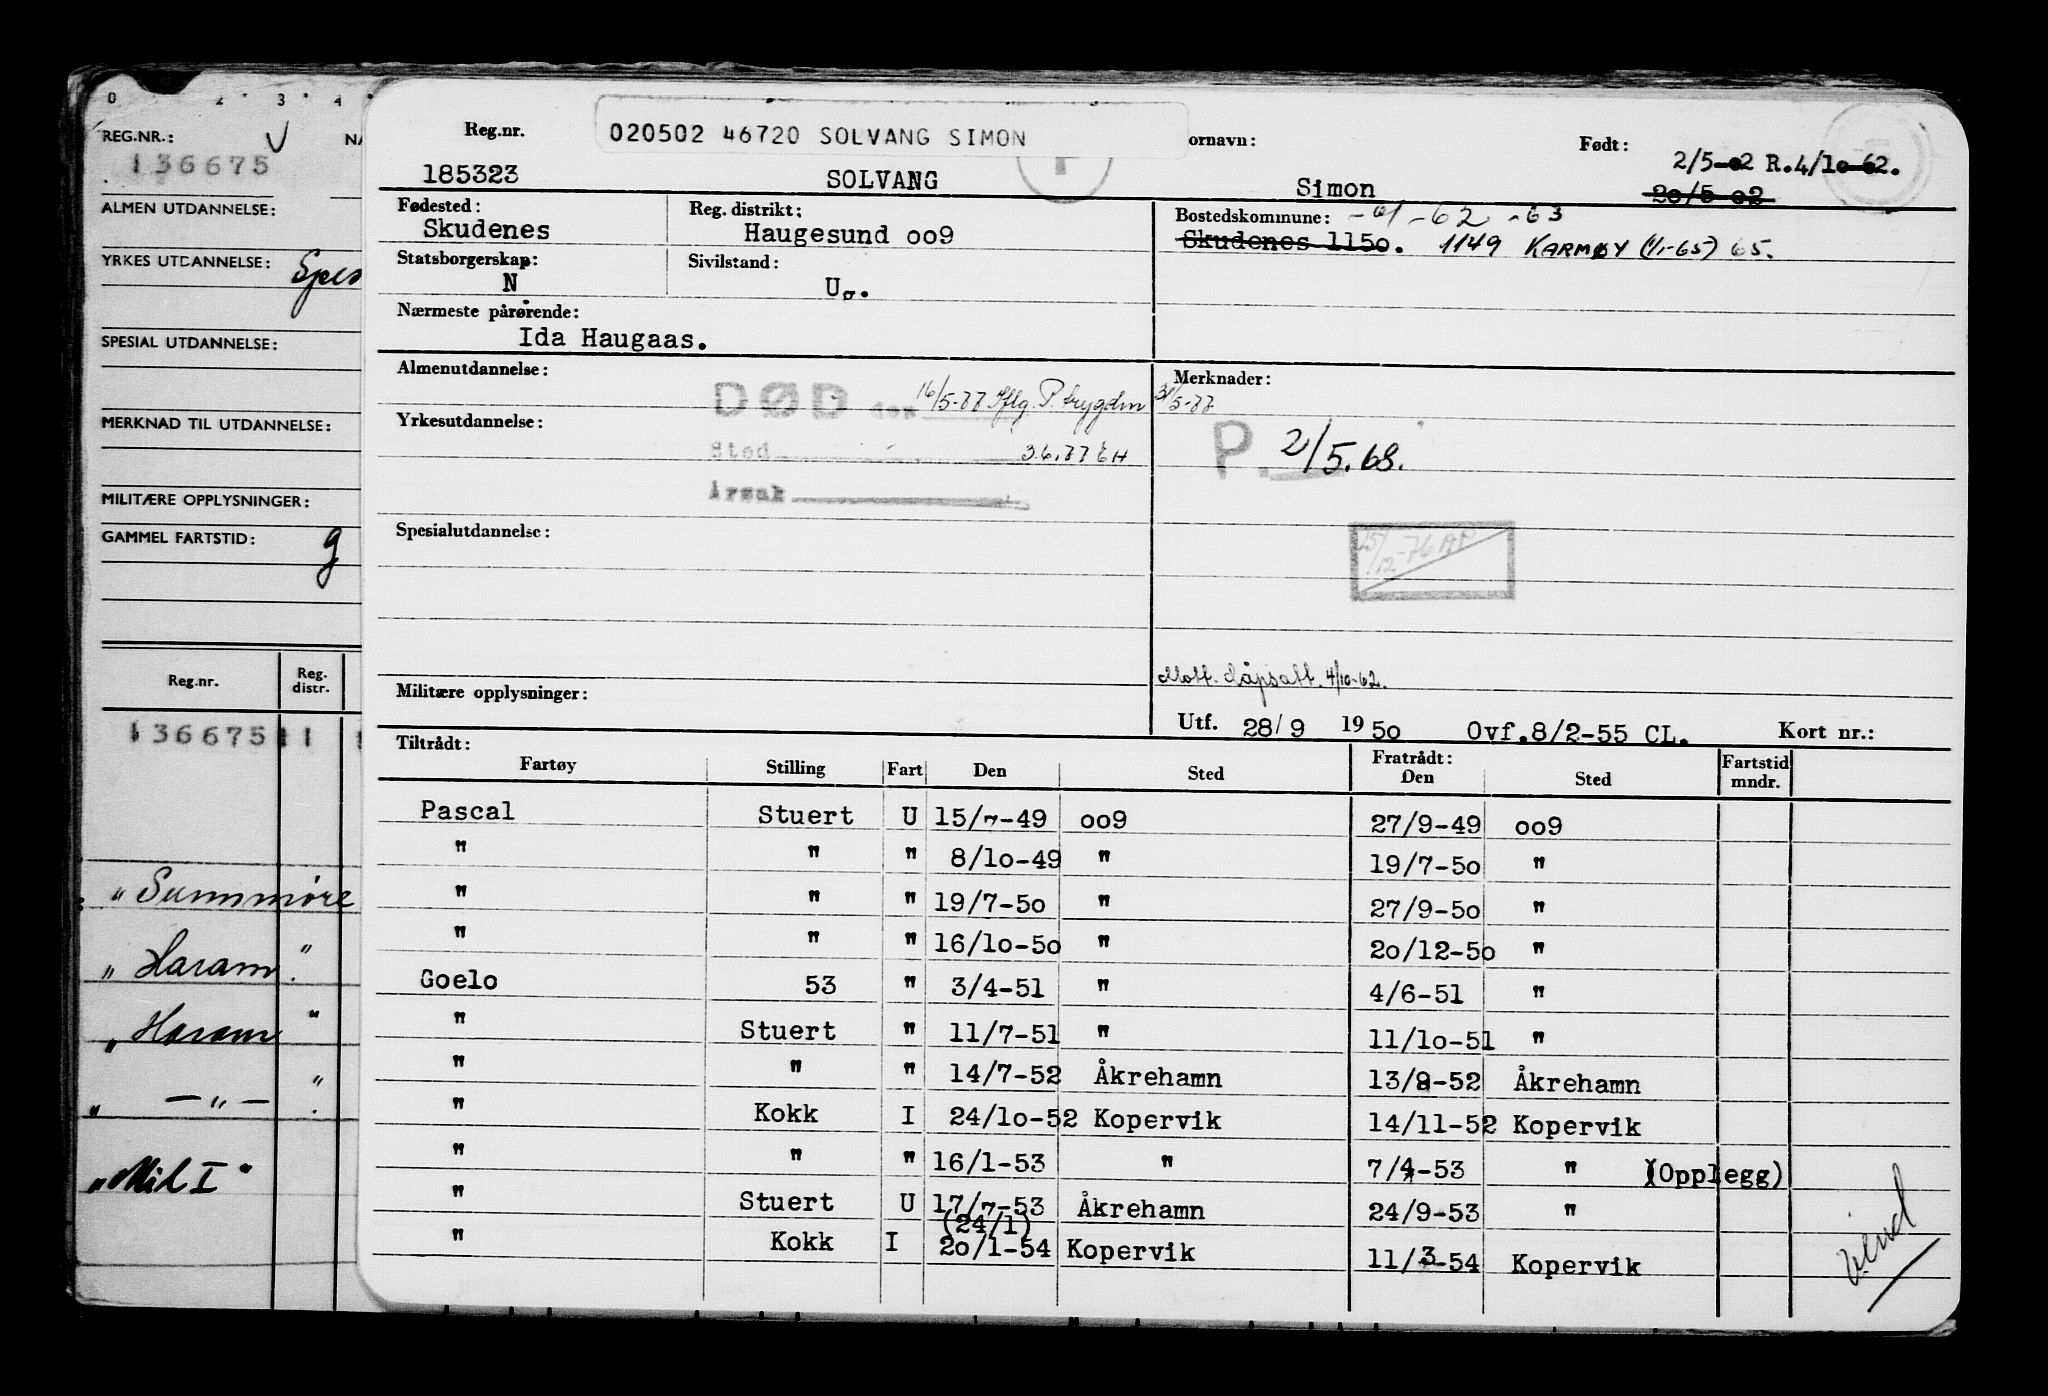 0 2 3 4
REG.NR.:
136675
ALMEN UTDANNELSE:
YRKES UTDANNELSE:
SPESIAL UTDANNELSE:
MERKNAD TIL UTDANNELSE:
MILITÆRE OPPLYSNINGER:
GAMMEL FARTSTID: g
Reg.nr. Reg. distr.
136675 11
"Sunnmøre
"Haram "
"Haram "
" —"— "
"Mil I"
Reg.nr. 020502 46720 SOLVANG SIMON ornavn: Født:
185323 SOLVANG Simon 2/5-02 R.4/10-62.
20/5-02
Fødested: Reg. distrikt: Bostedskommune: -61-62-63
Skudenes Haugesund oo9 Skudenes 115o. 1149 KARMØY (1/1-65) 65.
Statsborgerskap: Sivilstand:
N U.
Nærmeste pårørende:
Ida Haugaas.
Almenutdannelse: Merknader:
DØD den 16/5-77 Iflg. P.trygden 31/5-77
Yrkesutdannelse: P. 2/5.68.
Sted 3.6.77 EH
Årsak
Spesialutdannelse: 15/12-76 AP
4/10-62.
Militære opplysninger:
Utf. 28/9 1950 Ovf.8/2-55 CL. Kort nr.:
Tiltrådt: Fratrådt:
Fartøy Stilling Fart Den Sted Den Sted Fartstid mndr.
Pascal Stuert U 15/7-49 oo9 27/9-49 oo9
" " " 8/1o-49 " 19/7-5o "
" " " 19/7-5o " 27/9-5o "
" " " 16/1o-5o " 2o/12-5o "
Goelo 53 " 3/4-51 " 4/6-51 "
" Stuert " 11/7-51 " 11/1o-51 "
" " " 14/7-52 Åkrehamn 13/8-52 Åkrehamn
" Kokk I 24/1o-52 Kopervik 14/11-52 Kopervik
" " " 16/1-53 " 7/4-53 " (Opplegg)
" Stuert U 17/7-53 Åkrehamn 24/9-53 "
(24/1)
" Kokk I 2o/1-54 Kopervik 11/3-54 Kopervik
Vend